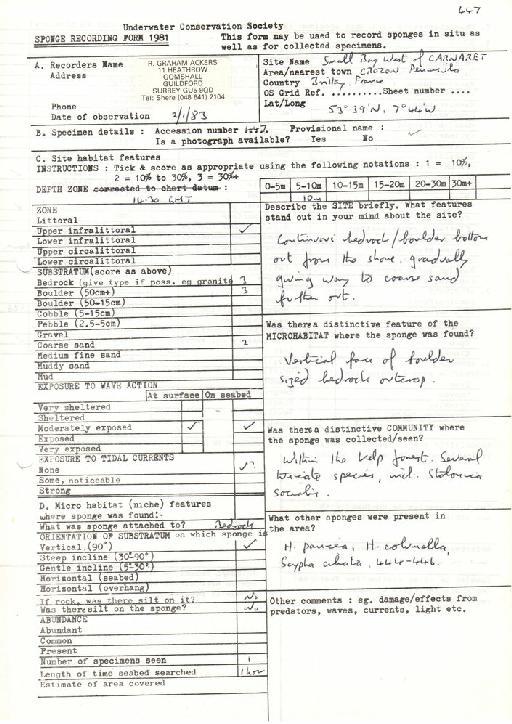 447
Underwater Conservation Society
SPONGE RECORDING FORM 1981
This form may be used to record sponges in situ as
well as for collected specimens.
A. Recorders Name
Address
R. GRAHAM ACKERS
11 HEATHROW
GOMSHALL
GUILDFORD
SURREY GU5 9QD
Tel: Shere (048 641) 2104
Phone
Date of observation 2/1/83
Site Name Small Bay west of CAMARET
Area/nearest town CROZON Peninsula
Country Brittany France
OS Grid Ref. ..........Sheet number ....
Lat/Long
B. Specimen details : Accession number 447 Provisional name :
Is a photograph available? Yes No
C. Site habitat features
INSTRUCTIONS : Tick & score as appropriate using the following notations : 1 = 10%,
2 = 10% to 30%, 3 = 30%+
DEPTH ZONE corrected to chart datum :
0-5m 5-10m 10-15m 15-20m 20-30m 30m+
10m
ZONE
Littoral
Upper infralittoral ✓
Lower infralittoral
Upper circalittoral
Lower circalittoral
SUBSTRATUM(score as above)
Bedrock (give type if poss. eg granite 3
Boulder (50cm+) 3
Boulder (50-15cm)
Cobble (5-15cm)
Pebble (2.5-5cm)
Gravel
Coarse sand 2
Medium fine sand
Muddy sand
Mud
EXPOSURE TO WAVE ACTION
At surface On seabed
Very sheltered
Sheltered
Moderately exposed ✓ ✓
Exposed
Very exposed
EXPOSURE TO TIDAL CURRENTS
None ✓?
Some, noticeable
Strong
Describe the SITE briefly. What features
stand out in your mind about the site?
Continuous bedrock/boulder bottom
out from the shore. gradually
giving way to coarse sand
further out.
Was there a distinctive feature of the
MICROHABITAT where the sponge was found?
Vertical face of boulder
sized bedrock outcrop.
Was there a distinctive COMMUNITY where
the sponge was collected/seen?
Within the kelp forest. Several
tunicate species, incl. Stolonica
socialis.
D. Micro habitat (niche) features
where sponge was found:-
What was sponge attached to? Bedrock
ORIENTATION OF SUBSTRATUM on which sponge is
Vertical (90°) ✓
Steep incline (30-90°)
Gentle incline (5-30°)
Horizontal (seabed)
Horizontal (overhang)
If rock, was there silt on it? No
Was there silt on the sponge? No
ABUNDANCE
Abundant
Common
Present
Number of specimens seen 1
Length of time seabed searched 1 hour
Estimate of area covered
What other sponges were present in
the area?
H. panicea, H. columella,
Scypha ciliata, 444-446.
Other comments : eg. damage/effects from
predators, waves, currents, light etc.